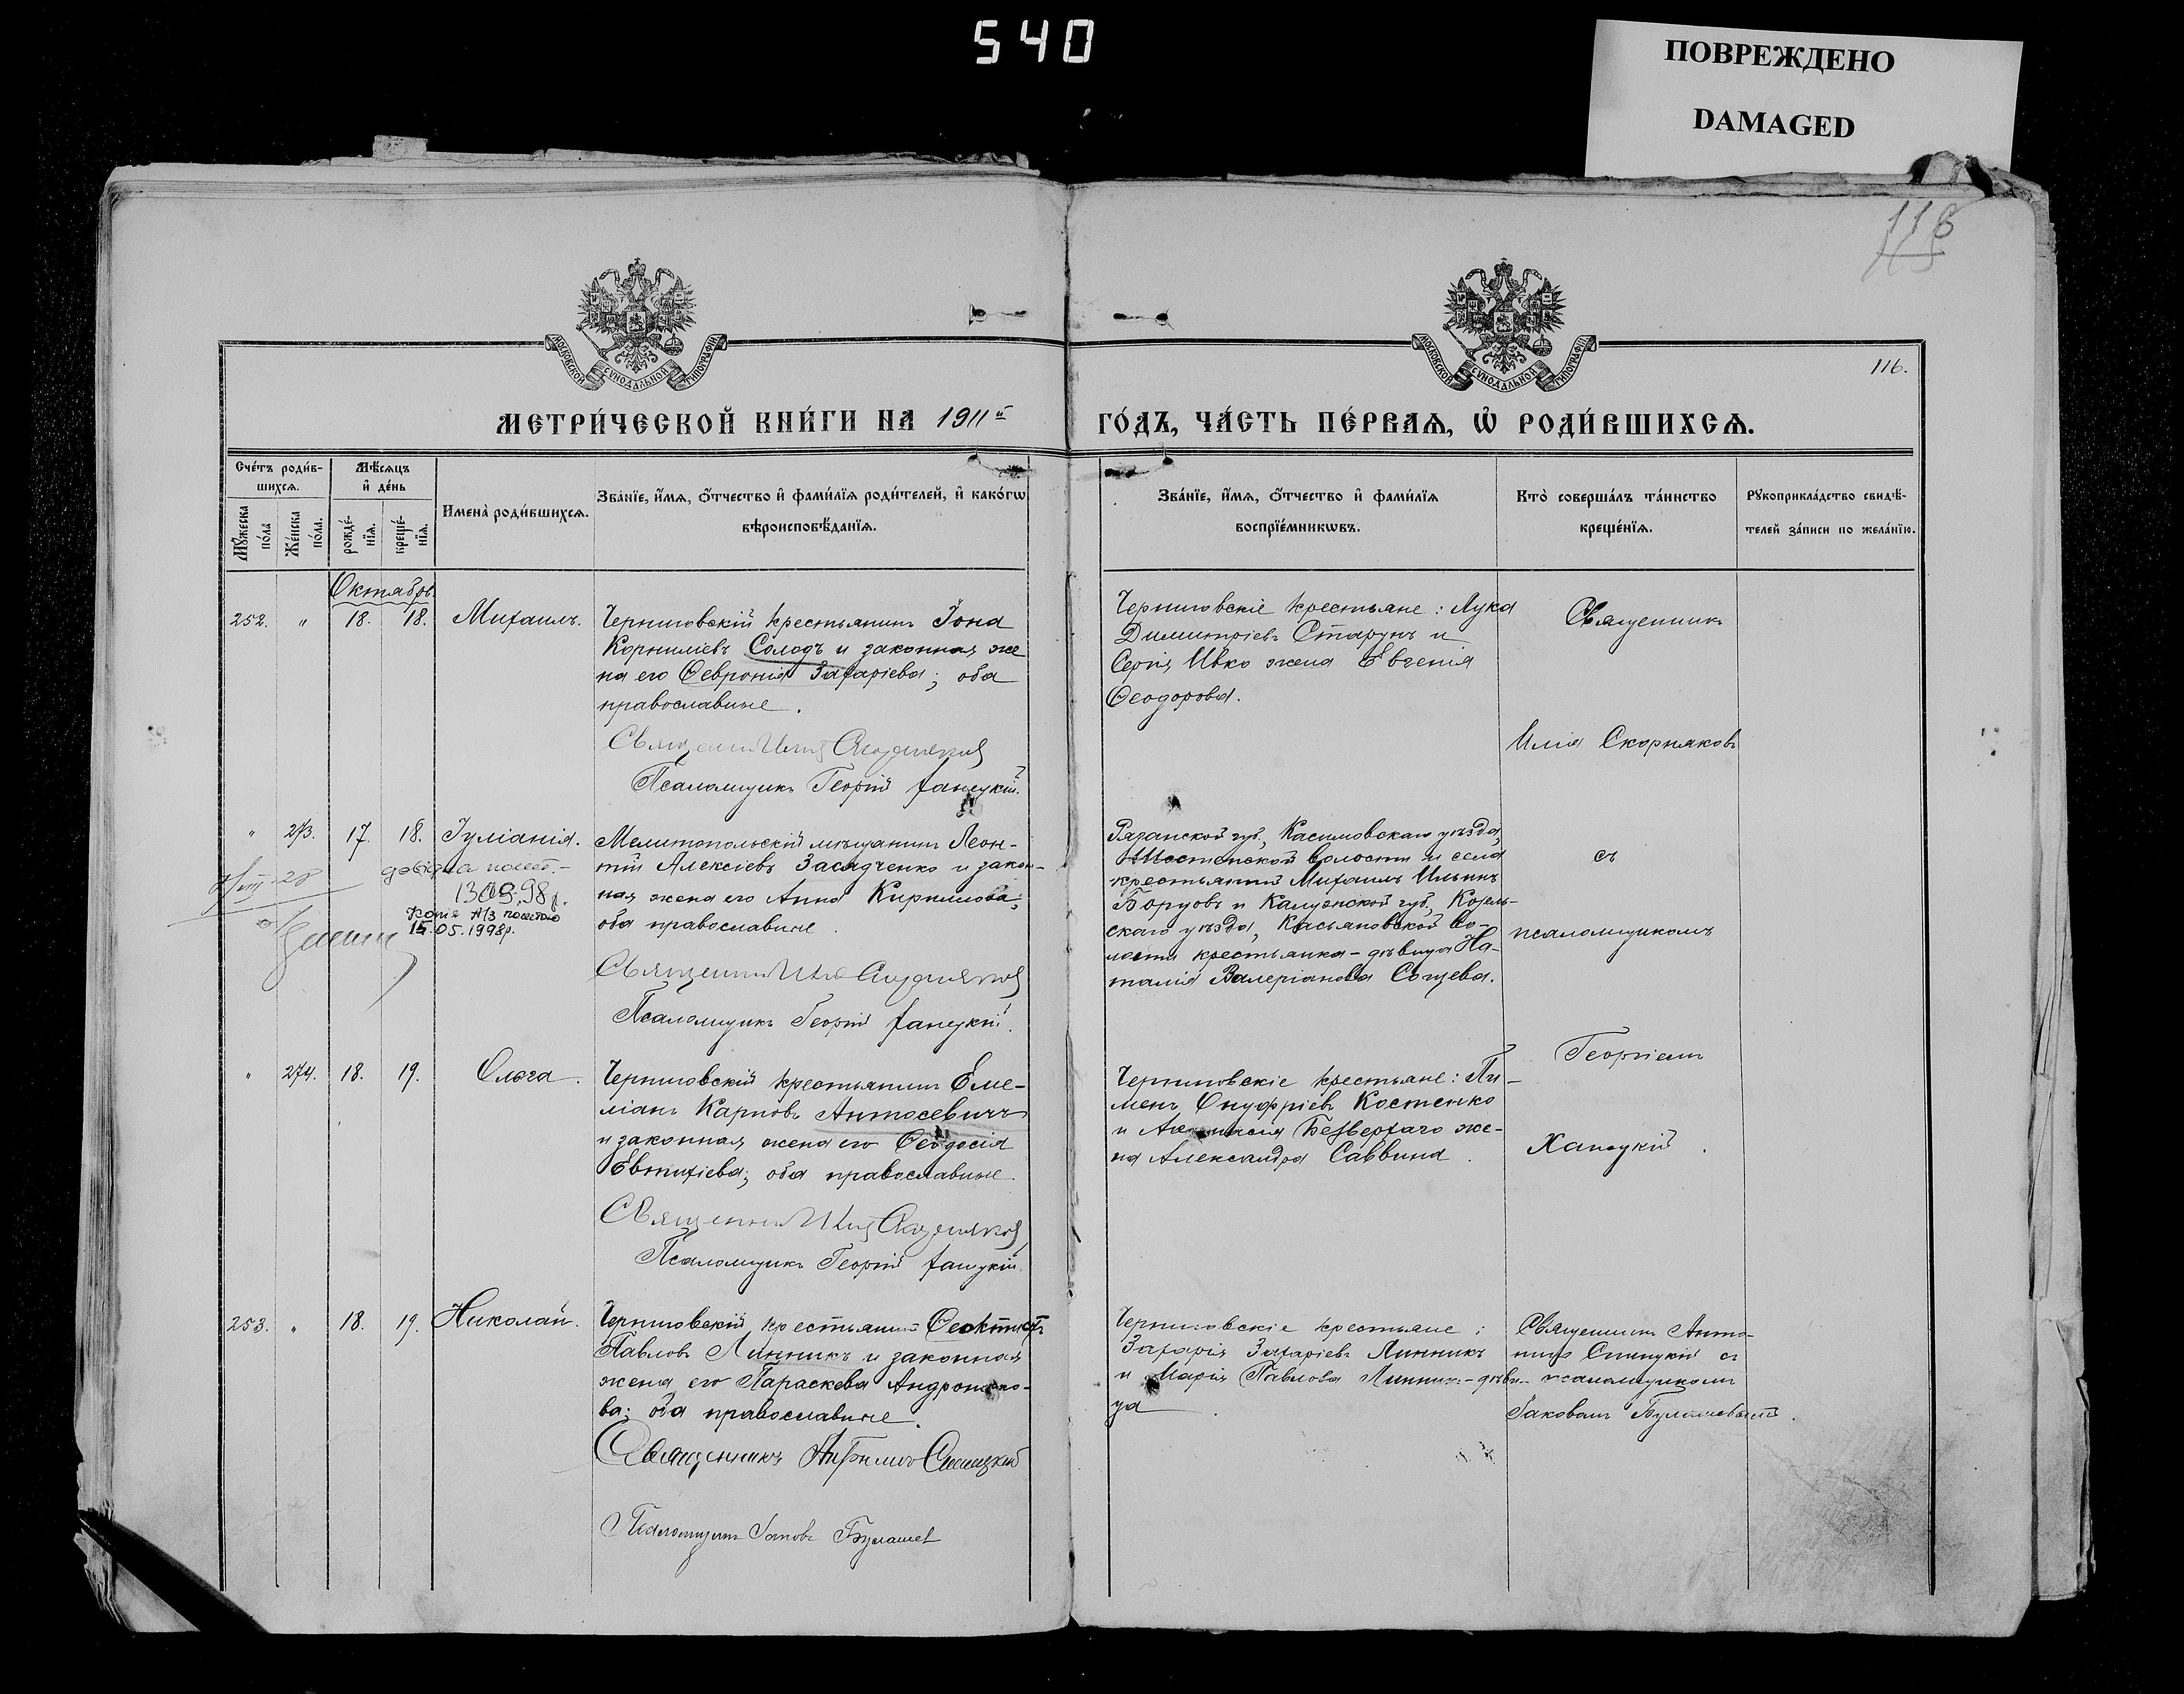 540
ПОВРЕЖДЕНО
DAMAGED
116
116.
МОСКОВСКОЙ СѴНОДАЛЬНОЙ ТИПОГРАФІИ
МОСКОВСКОЙ СѴНОДАЛЬНОЙ ТИПОГРАФІИ
МЕТРИ́ЧЕСКОЙ КНИ́ГИ НА 1911й
ГО́ДЪ, ЧА́СТЬ ПЕ́РВАѦ, Ѡ҆ РОДИ́ВШИХСѦ.
Сче́тъ роди́в-
шихсѧ.
Мѣ́сѧцъ
и҆ де́нь
Мꙋ́жеска
по́ла
Же́нска
по́ла.
рожде́-
нїѧ.
креще́-
нїѧ.
Имена̀ роди́вшихсѧ.
Зва́нїе, и҆́мѧ, ѻ҆́тчество и҆ фами́лїѧ роди́телей, и҆ како́гѡ
вѣроисповѣ́данїѧ.
Зва́нїе, и҆́мѧ, ѻ҆́тчество и҆ фами́лїѧ
воспрїе́мникѡвъ.
Кто̀ соверша́лъ та́инство
креще́нїѧ.
Рꙋкоприкла́дство свидѣ́-
телей за́писи по жела́нїю.
Октябрь
252. " 18. 18. Михаилъ.
Черниговскій крестьянинъ Іона
Корниліевъ Солодъ и законная же
на его Ѳевронія Захаріева; оба
православные.
Священникъ Илія Скорняковъ
Псаломщикъ Георгій Ханецкій.
Черниговскіе крестьяне: Лука
Димитріевъ Старунъ и
Сергія Ивко жена Евгенія
Ѳеодорова.
Священникъ
Илія Скорняковъ
" 273. 17. 18. Іуліанія.
28
13.09.98 р.
15.05.1998р.
Мелитопольскій мѣщанинъ Леон-
тій Алексіевъ Засядченко и закон-
ная жена его Анна Кириллова,
оба православные.
Священникъ Илія Скорняковъ
Псаломщикъ Георгій Ханецкій.
Рязанской губ., Касимовскаго уѣзда,
волости и села
крестьянинъ Михаилъ Ильинъ
Борцовъ и Калужской губ., Козель-
скаго уѣзда, Касьяновской во-
лости крестьянка-дѣвица На-
талія Валеріанова
съ
псаломщикомъ
Георгіемъ
Ханецкій.
" 274. 18. 19. Ольга.
Черниговскій крестьянинъ Еме-
ліанъ Карповъ Антосевичъ
и законная жена его Ѳеодосія
Евтихіева; оба православные.
Священникъ Илія Скорняковъ
Псаломщикъ Георгій Ханецкій.
Черниговскіе крестьяне: Пи-
менъ Онуфріевъ Костенко
и Безверхаго же-
на Александра Саввина.
253. " 18. 19. Николай.
Черниговскій крестьянинъ Ѳеоктистъ
Павловъ Линникъ и законная
жена его Параскева Андроніко-
ва; оба православные.
Священникъ Антоній Синицкій
Псаломщикъ Іаковъ Булашев
Черниговскіе крестьяне:
Захарія Захаріевъ Линникъ
и Марія Павлова Линникъ-дѣви-
ца.
Священникъ Анто-
ній Синицкій съ
псаломщикомъ
Іаковомъ Булашевымъ.